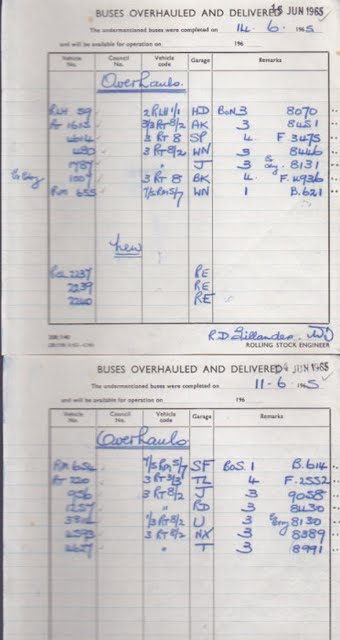 BUSES OVERHAULED AND DELIVERED 15 JUN 1965
The undermentioned buses were completed on 14. 6. 1965
and will be available for operation on 196
Vehicle No. Council No. Vehicle code Garage Remarks
Overhauls.
RLH 59 2 RLH 1/1 HD BoN 3 8070
RT 1615 3/3 RT 8/2 AK 3 8451
4614 3 RT 8 SP 4. F 3475
480 3 RT 8/2 WN 3 8446
1787 " J 3 8131
1007 3 RT 8 BK 4. F.4936
RM 655 7/5 RM 5/7 WN 1 B.621
new
RCL 2237 RE
2239 RE
2240 RE
R.D. Gillander.
ROLLING STOCK ENGINEER
BUSES OVERHAULED AND DELIVERED 14 JUN 1965
The undermentioned buses were completed on 11-6. 1965
and will be available for operation on 196
Vehicle No. Council No. Vehicle code Garage Remarks
Overhauls.
RM 654 7/5 RM 5/7 SF BoS. 1 B.614
RT 220 3 RT 3/3 TL 4 F.2552
956 3 RT 8/2 J 3 9058
1257 " RD 3 8430
1/3 RT 8/2 U 3 8130
4593 3 RT 8/2 NX 3 8389
4657 " T 3 8991